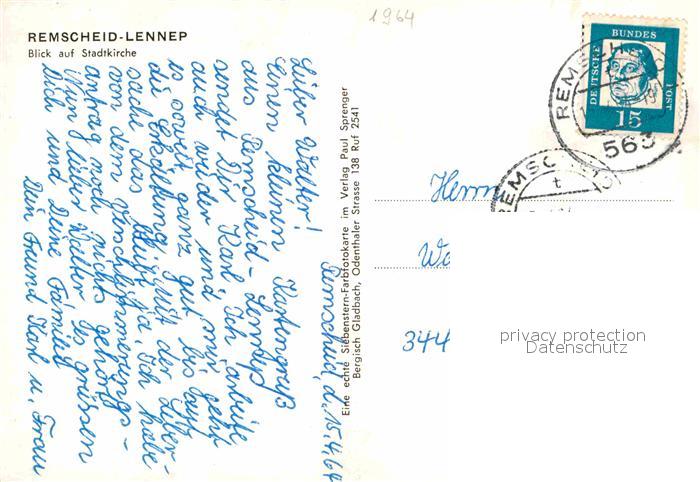 1964
REMSCHEID-LENNEP
Blick auf Stadtkirche
Remscheid, d. 15.4.64
Lieber Walter!
Einen kleinen Kartengruß
aus Remscheid-Lennep
sendet Dir Karl. Ich arbeite
auch wieder und mir geht
es soweit ganz gut bis auf
die Erhöhung mit der
sache das ja, ich habe
von dem
antrag noch nichts gehört.
Nun lieber Walter es grüssen
Dich und Deine Familie
Dein Freund Karl u. Frau
Eine echte Siebenstern-Farbfotokarte im Verlag Paul Sprenger
Bergisch Gladbach, Odenthaler Strasse 138 Ruf 2541
DEUTSCHE BUNDES POST
15
REMSCHEID
563
REMSC
t
Herrn
Wa
344
privacy protection
Datenschutz